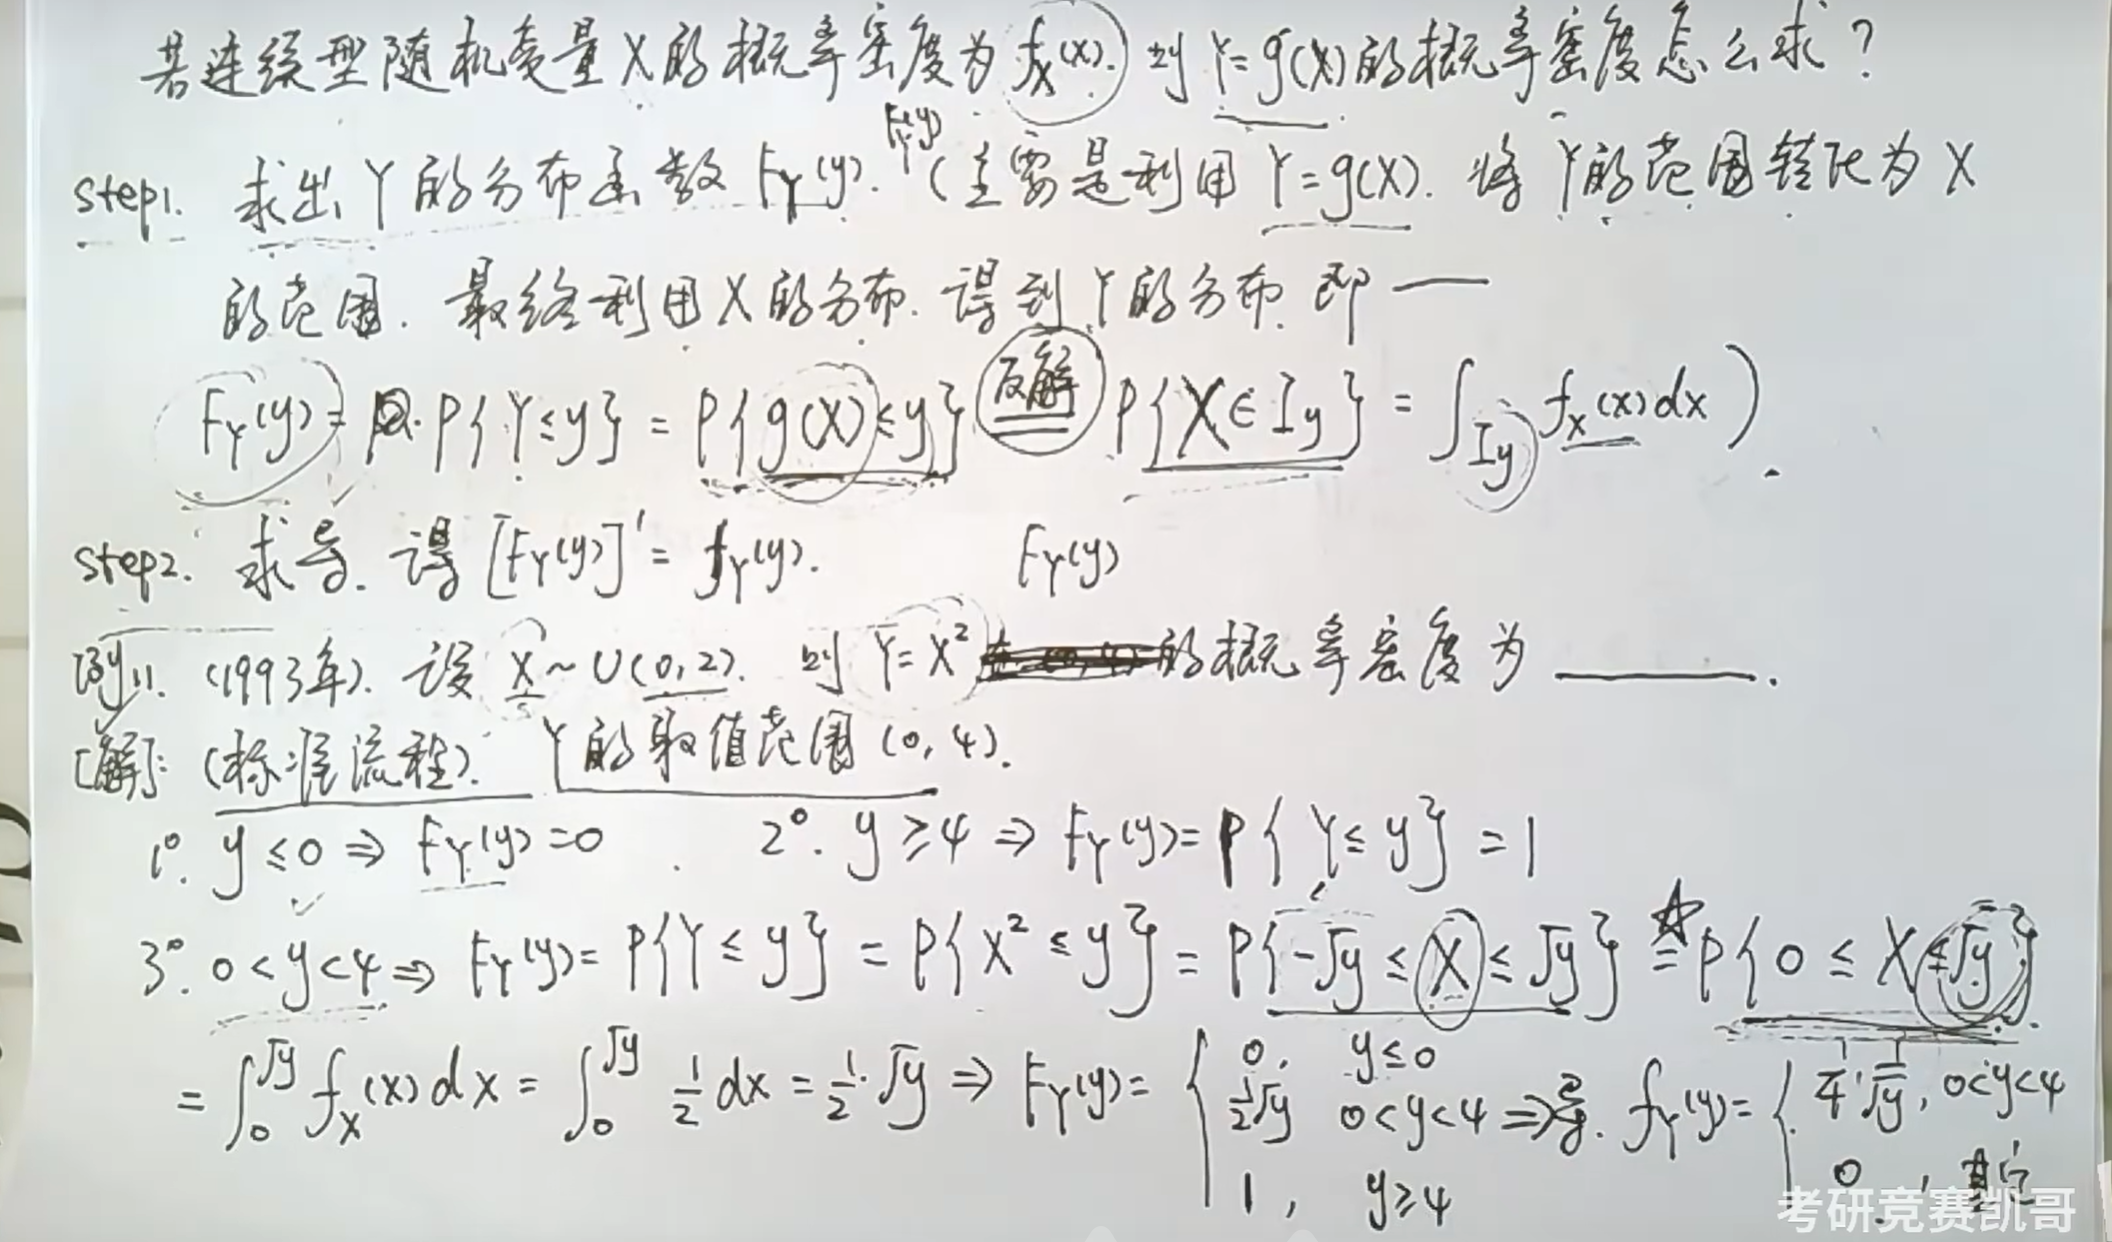 若连续型随机变量X的概率密度为 f_X(x). 则 Y=g(X)的概率密度怎么求?
step1. 求出Y的分布函数 F_Y(y). (主要是利用 Y=g(X). 将Y的范围转化为X
的范围. 最终利用X的分布. 得到Y的分布. 即——
F_Y(y)= P{Y≤y} = P{g(X)≤y} 反解 P{X∈I_y} = ∫_{I_y} f_X(x)dx).
step2. 求导. 得 [F_Y(y)]' = f_Y(y). F_Y(y)
例1. (1993年). 设 X~U(0,2). 则 Y=X² 的概率密度为 ______.
[解]: (标准流程). Y的取值范围(0,4).
1°. y≤0 ⇒ F_Y(y)=0. 2°. y≥4 ⇒ F_Y(y)=P{Y≤y}=1
3°. 0<y<4 ⇒ F_Y(y)=P{Y≤y}=P{X²≤y}=P{-√y≤X≤√y} ☆= P{0≤X≤√y}
= ∫_0^{√y} f_X(x)dx = ∫_0^{√y} 1/2 dx = 1/2·√y ⇒ F_Y(y)= { 0, y≤0; 1/2√y 0<y<4; 1, y≥4 ⇒导. f_Y(y)= { 1/4·1/√y, 0<y<4; 0, 其它
考研竞赛凯哥